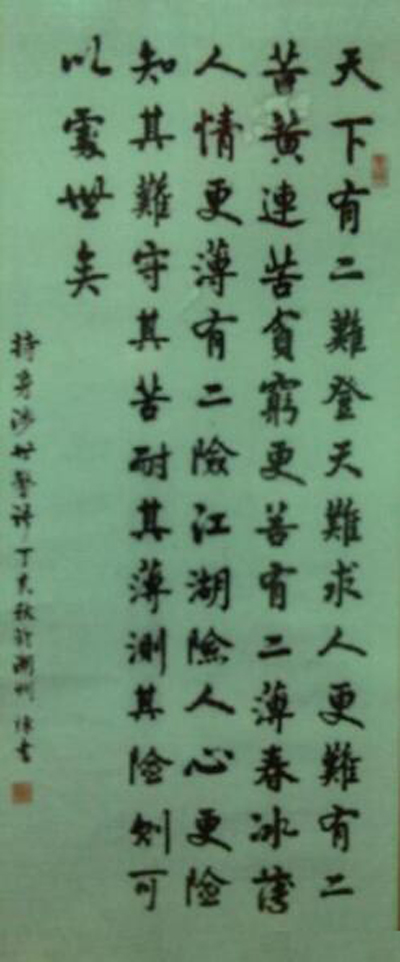 天下有二難登天難求人更難有二
苦黃連苦貧窮更苦有二薄春冰薄
人情更薄有二險江湖險人心更險
知其難守其苦耐其薄測其險則可
以處世矣
持身涉世警 丁亥秋於州書